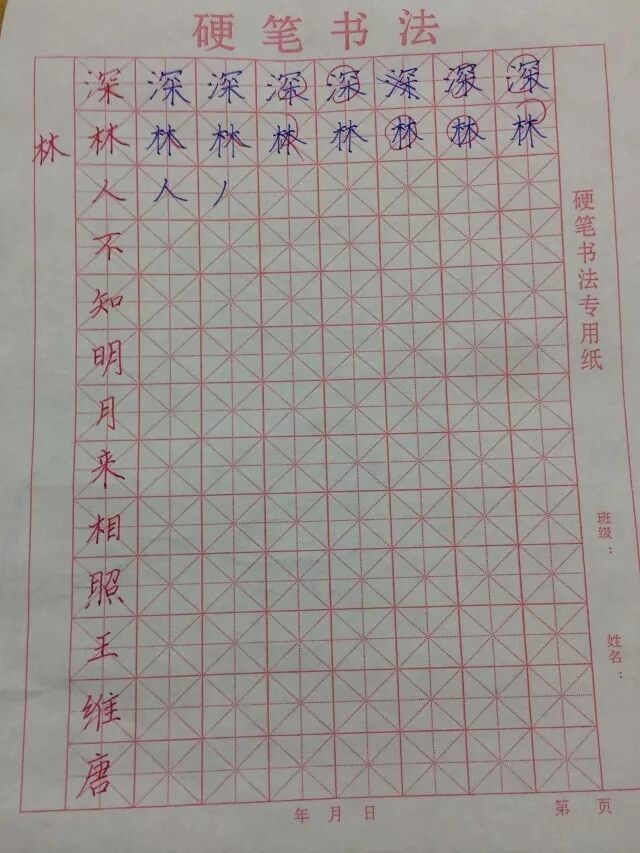 硬笔书法
深深深深深深深深
林林林林林林林林林
人人丿
不
知
明
月
来
相
照
王
维
唐
硬笔书法专用纸
班级：
姓名：
年月日
第 页